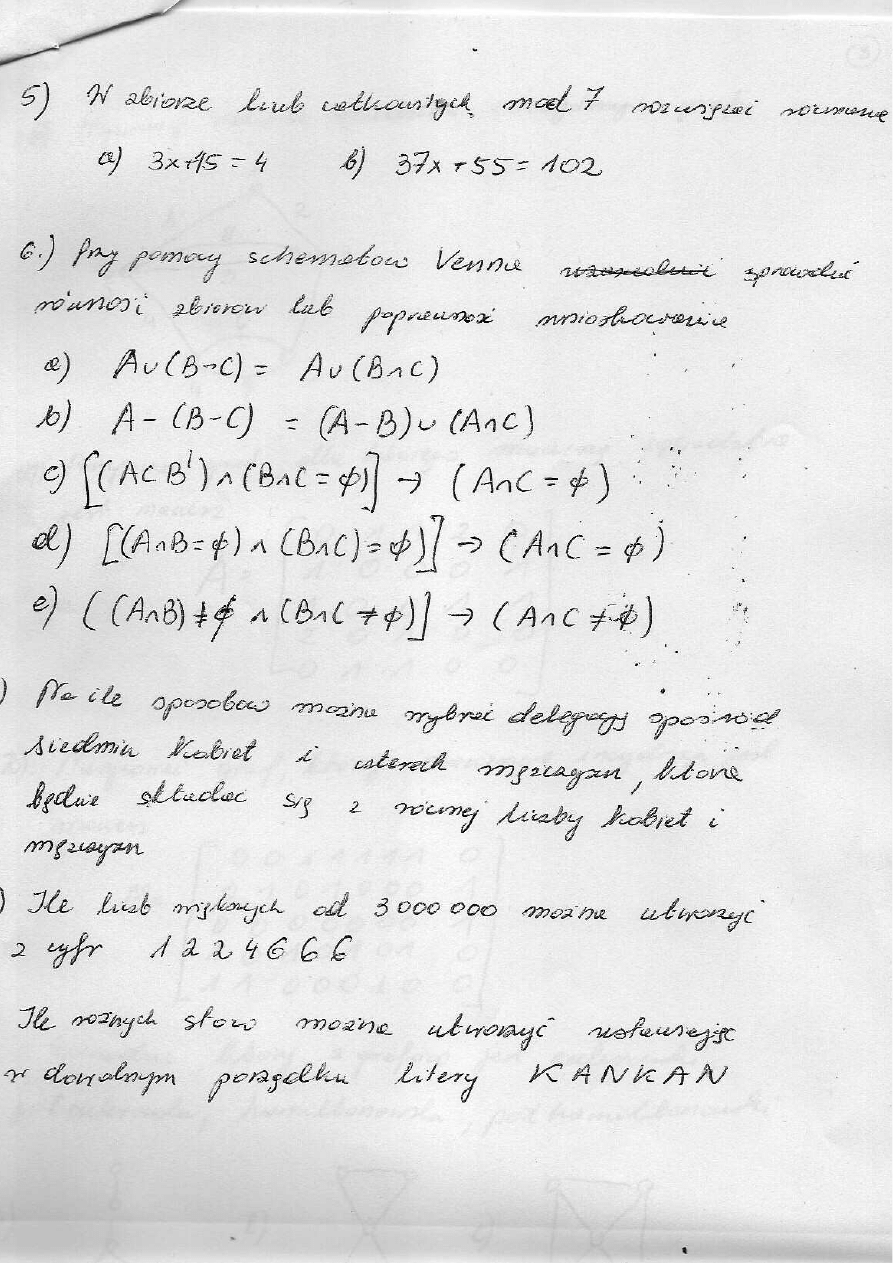 5) W zbiorze liczb całkowitych mod 7 rozwiązać równanie
a) 3x+15=4 b) 37x+55=102
6.) Przy pomocy schematów Venna sprawdzić
równość zbiorów lub poprawność wnioskowania
a) A∪(B-C) = A∪(B∩C)
b) A-(B-C) = (A-B)∪(A∩C)
c) [(A⊂B')∧(B∩C=ϕ)] → (A∩C=ϕ)
d) [(A∩B=ϕ)∧(B∩C)=ϕ)] → (A∩C=ϕ)
e) ((A∩B)≠ϕ∧(B∩C≠ϕ)] → (A∩C≠ϕ)
) Na ile sposobów można wybrać delegację spośród
siedmiu kobiet i czterech mężczyzn, która
będzie składać się z równej liczby kobiet i
mężczyzn
) Ile liczb większych od 3000000 można utworzyć
z cyfr 1224666
Ile różnych słów można utworzyć ustawiając
w dowolnym porządku litery KANKAN